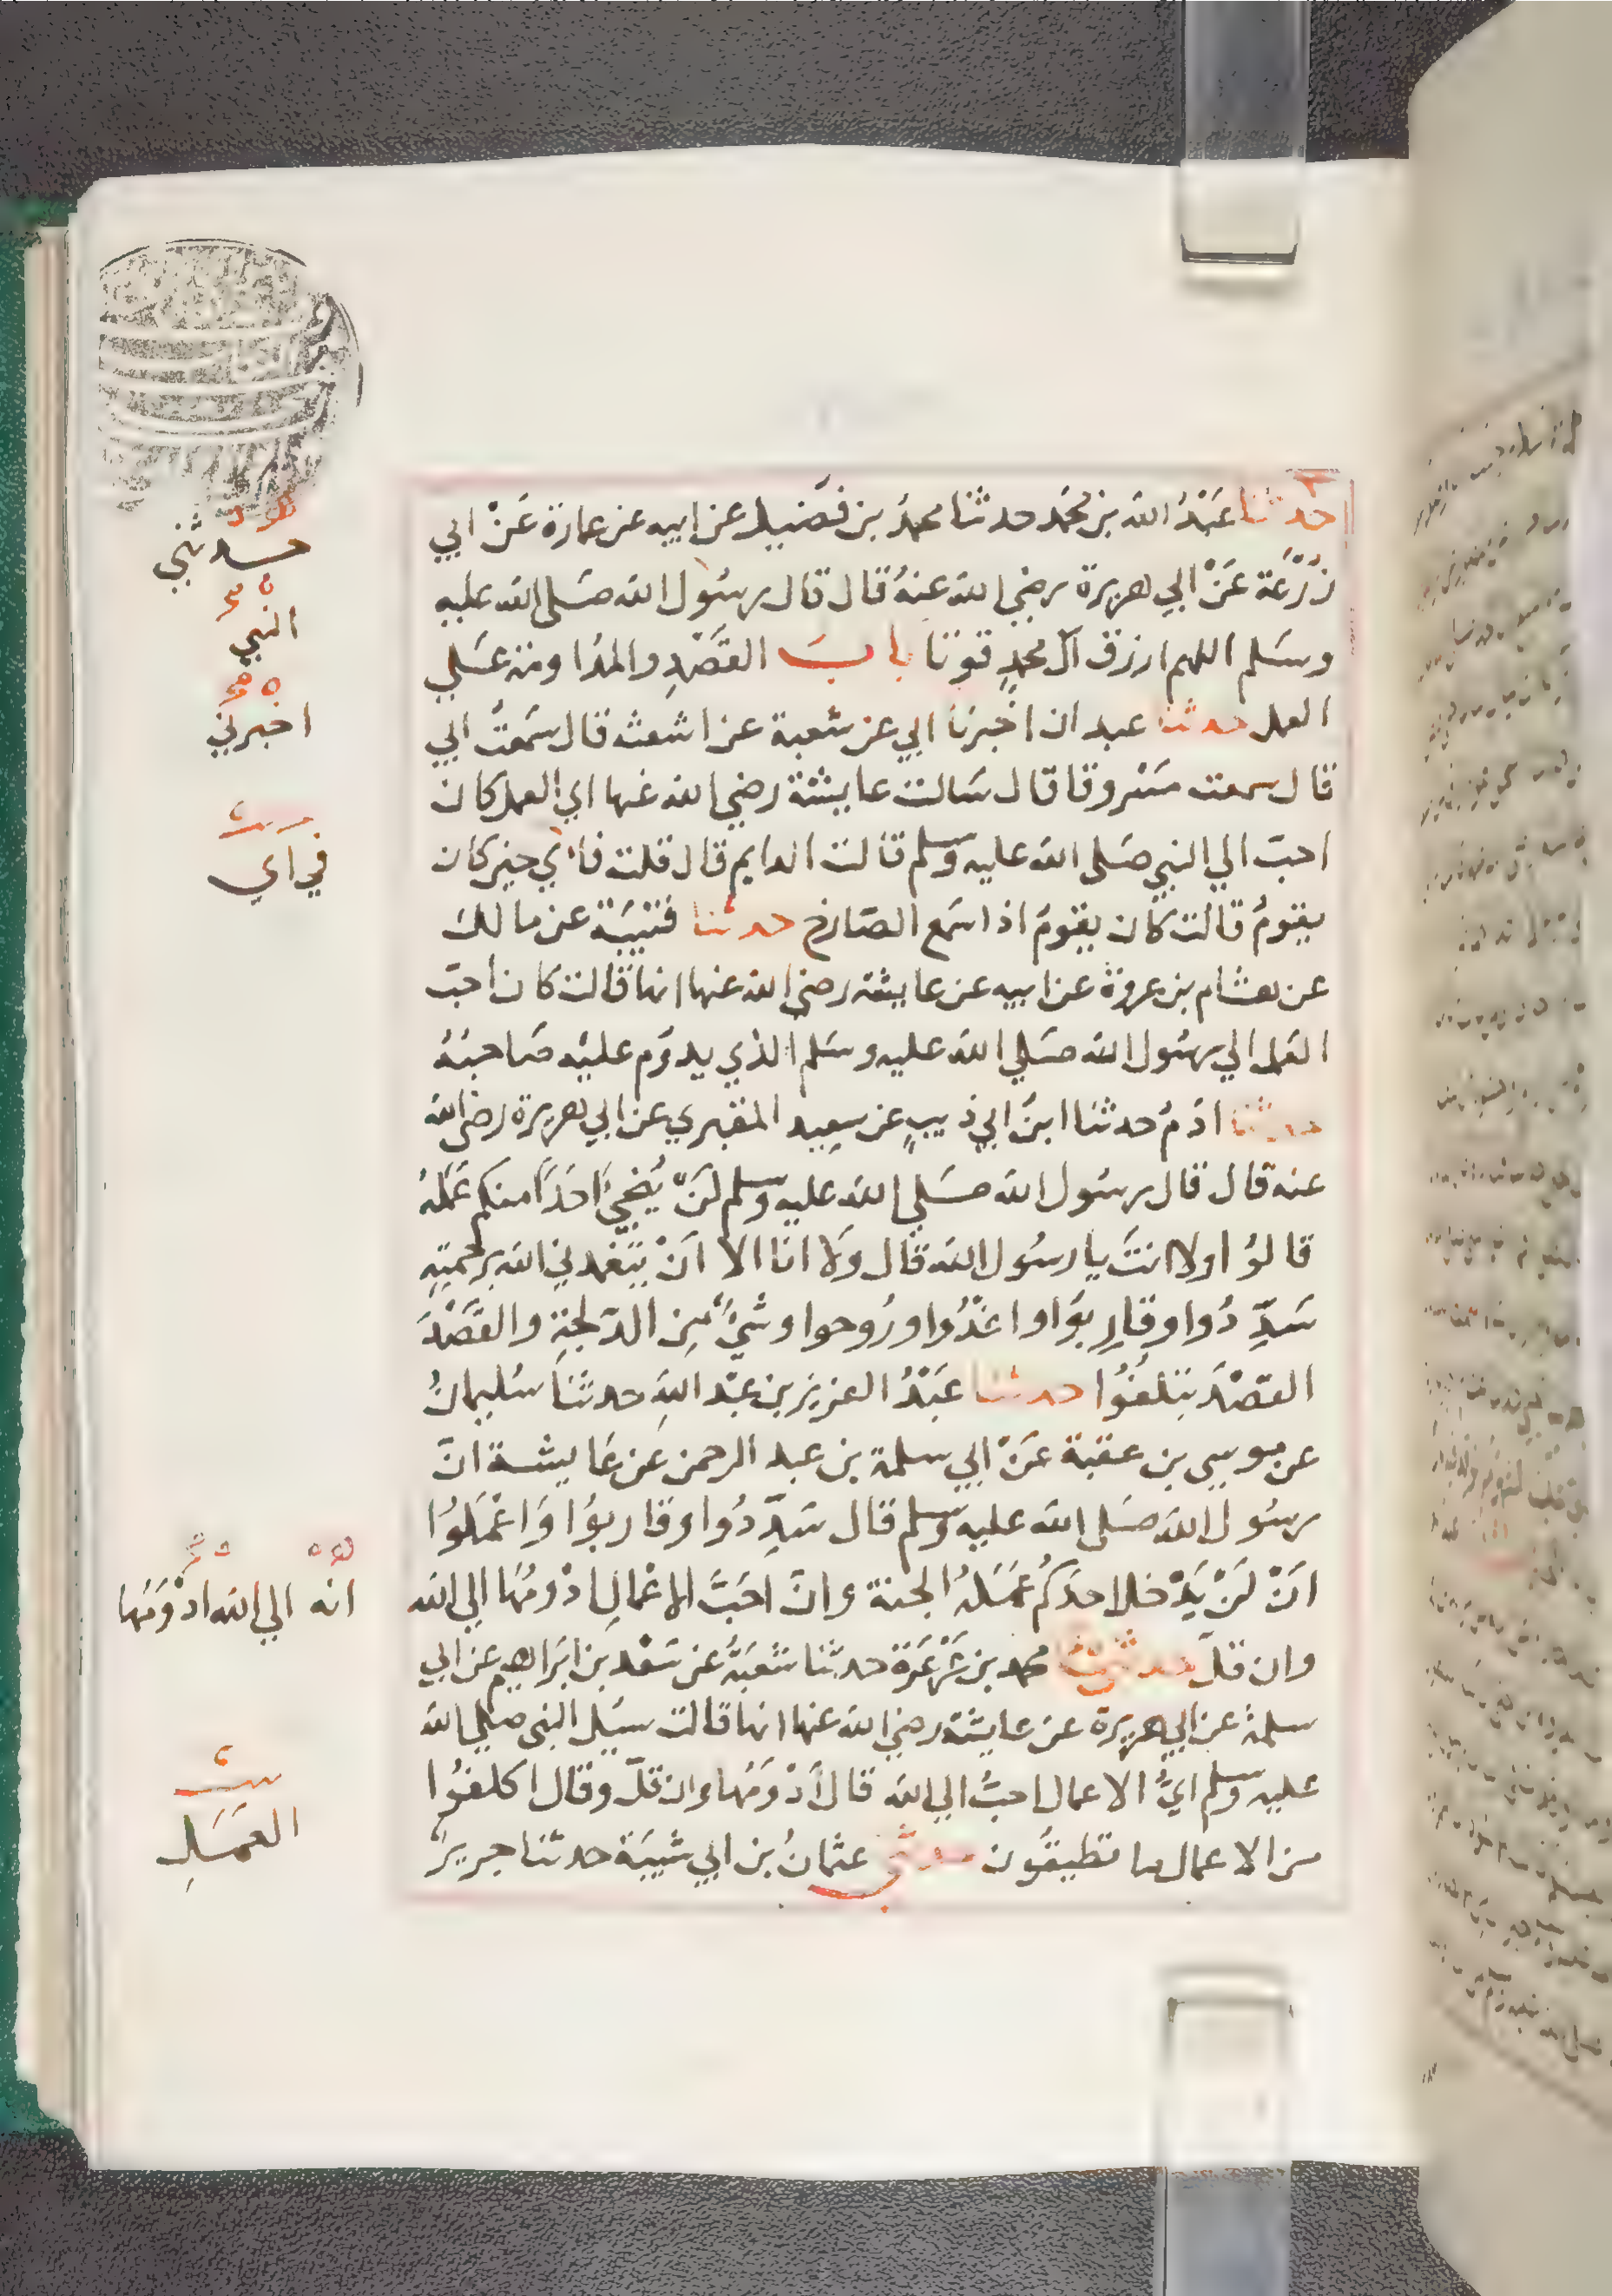 حدثنا عَبْدُ الله بن محمَّد حدثنا محمدُ بن فُضَيل عن ابيه عن عمارة عَنْ ابي
زُرْعَة عَنْ ابي هريرة رضي الله عنهُ قال قال رسُول الله صَلى الله عليه
وسَلم اللهم ارزق آل محمدٍ قوتًا بابُ القَصْدِ والمدُاومة عَلي
العمل حدثنا عبدان اخبرنا ابي عن شعبة عن اشعث قال سَمعتُ ابي
قال سمعت مَسْروقا قال سَالت عايشة رضي الله عنها اي العمل كان
احبّ الي النبي صَلى الله عليه وسلم قالت الدايم قال قلت فايّ حين كان
يقومُ قالت كان يقومُ اذا سَمع الصّارخ حدثنا قتيبَة عن مالك
عن هشام بن عروة عن ابيه عن عايشة رضي الله عنها انها قالت كان احبّ
العَمل الي رسُول الله صَلي الله عليه وسَلم الذي يدوُم عليْه صَاحبُهُ
حدثنا ادمُ حدثنا ابنُ ابي ذيبٍ عن سعِيد المقبري عن ابي هريرة رضي الله
عنه قال قال رسُول الله صَلي الله عليه وسلم لَنْ يُنَجّيَ احَدًا منكم عَمَلُهُ
قالوُا ولا انتَ يا رسُول الله قال ولَا انا الا اَنْ يَتَغمدني الله برحْمَتِهِ
سَدِّدُوا وقارِبوُا واغْدُوا ورُوحوا وشيْءٌ مِن الدّلجةِ والقَصْدَ
القصْدَ تبْلغُوا حدثنا عَبْدُ العزيز بن عبْد اللهِ حدثنا سُليمانُ
عن موسي بن عقبة عَنْ ابي سلمة بن عبد الرحمن عن عَايشة انّ
رسُول الله صَلى الله عليه وسلم قال سَدِّدُوا وقاربوُا وَاعْمَلوُا
انَّ لَنْ يَدْخل احدَكُم عَمَلهُ الجنة وانّ احَبّ الاعْمالِ ادْومُهَا الي الله
وان قلّ حدثني محمد بن عَرْعَرَة حدثنا شعبَةُ عن سَعْد بن ابَراهيم عن ابي
سلمة عن ابي هريرة عن عايشة رضي الله عنها انها قالت سيل النبي صلي الله
عليه وسلم ايُّ الاعمال احبُّ الي الله قال اَدْوَمُها وان قلّ وقال اكلفوُا
من الاعمال ما تطيقُون حدثني عثمانُ بن ابي شَيبَة حدثنا جريرٌ
حدثني
النبي
اخبرني
في اي
انه الي الله ادْوَمَها
العمَلِ